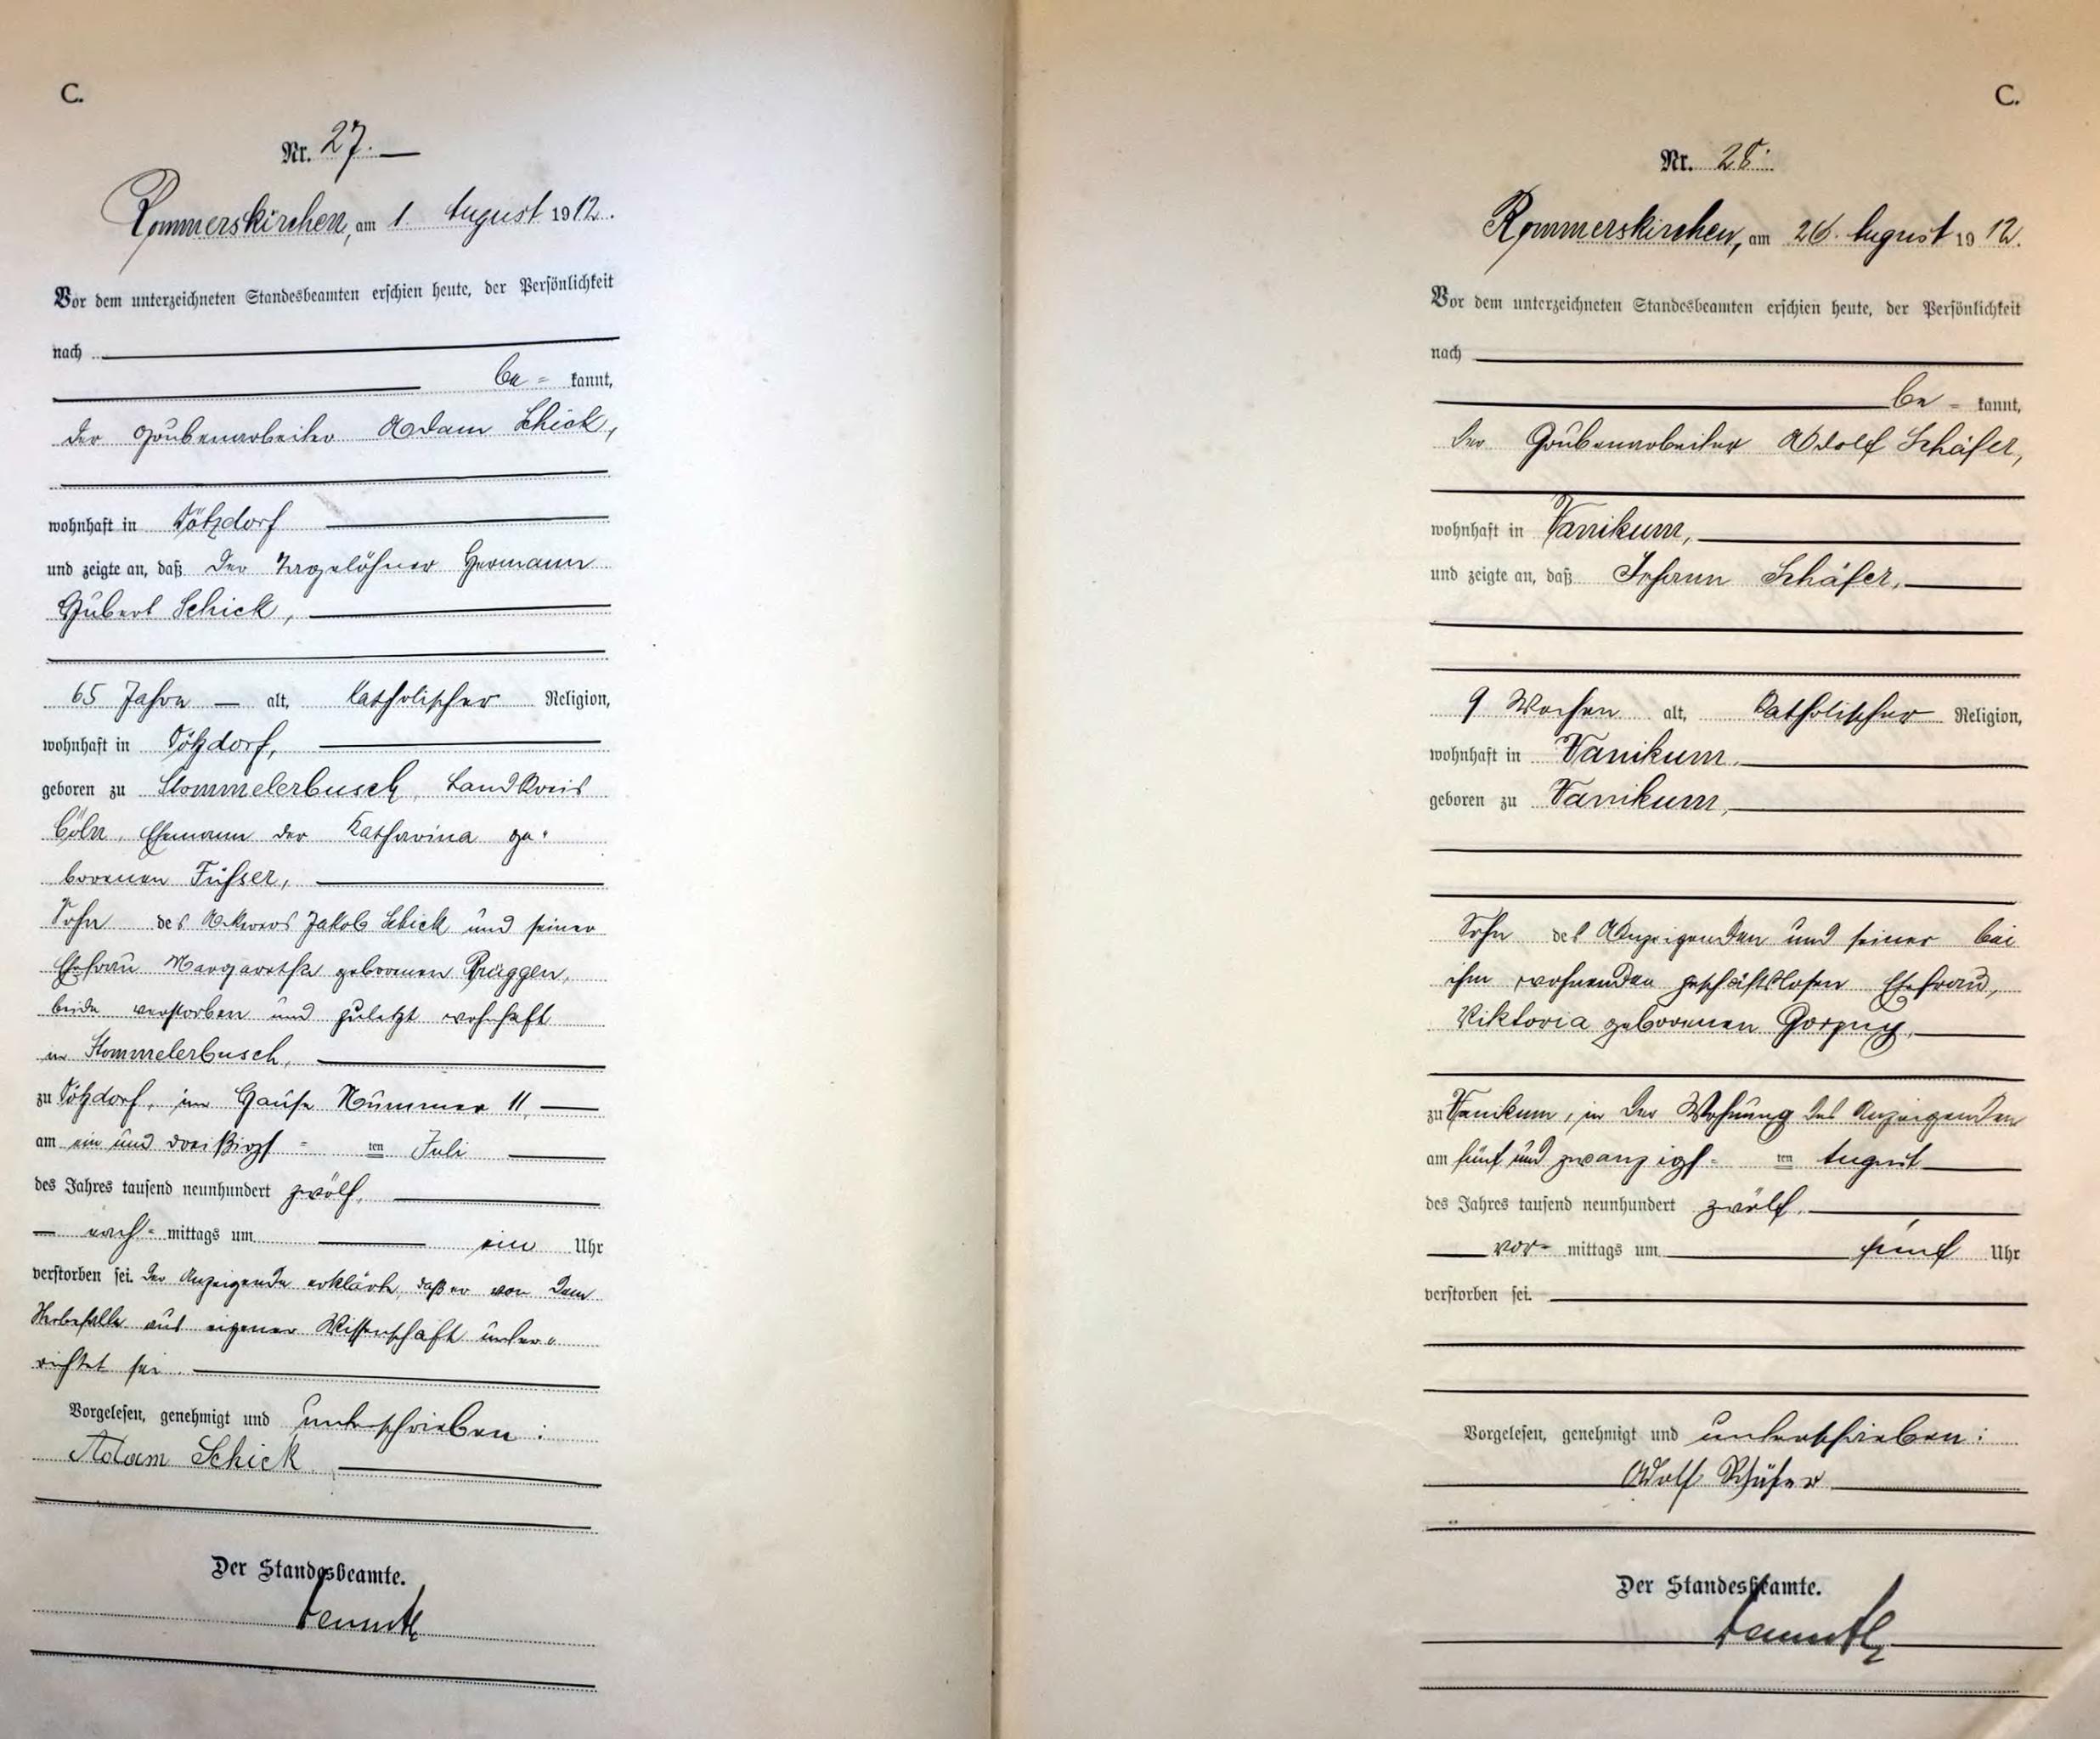 C.
Nr. 27.
Rommerskirchen, am 1. August 1912.
Vor dem unterzeichneten Standesbeamten erschien heute, der Persönlichkeit
nach
be= kannt,
der Grubenarbeiter Adam Schick,
wohnhaft in
und zeigte an, daß der Tagelöhner Hermann
Hubert Schick,
65 Jahre alt, katholischer Religion,
wohnhaft in
geboren zu Stommelerbusch, Landkreis
Cöln, Ehemann der Katharina ge=
borenen Füsser,
Sohn des Ackerers Jakob Schick und seiner
Ehefrau Margaretha geborenen Brüggen,
beide verstorben und zuletzt wohnhaft
in Stommelerbusch,
zu im Hause Nummer 11,
am ein und dreißigs= ten Juli
des Jahres tausend neunhundert zwölf,
nach= mittags um ein Uhr
verstorben sei. Der Anzeigende erklärte, daß er von dem
Sterbefalle aus eigener Wissenschaft unter=
richtet sei.
Vorgelesen, genehmigt und unterschrieben:
Adam Schick
Der Standesbeamte.
C.
Nr. 28.
Rommerskirchen, am 26. August 1912.
Vor dem unterzeichneten Standesbeamten erschien heute, der Persönlichkeit
nach
be= kannt,
der Grubenarbeiter Adolf Schäfer,
wohnhaft in Vanikum,
und zeigte an, daß Johann Schäfer,
9 Wochen alt, katholischer Religion,
wohnhaft in Vanikum,
geboren zu Vanikum,
Sohn des Anzeigenden und seiner bei
ihm wohnenden geschäftslosen Ehefrau,
Viktoria geborenen
zu Vanikum, in der Wohnung des Anzeigenden
am fünf und zwanzigs= ten August
des Jahres tausend neunhundert zwölf,
vor= mittags um fünf Uhr
verstorben sei.
Vorgelesen, genehmigt und unterschrieben:
Adolf Schäfer
Der Standesbeamte.